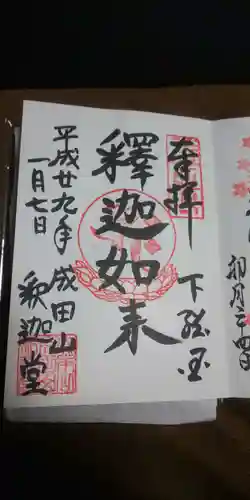 奉拝
下総国
釋迦如来
平成廿九年 成田山
一月七日 釈迦堂